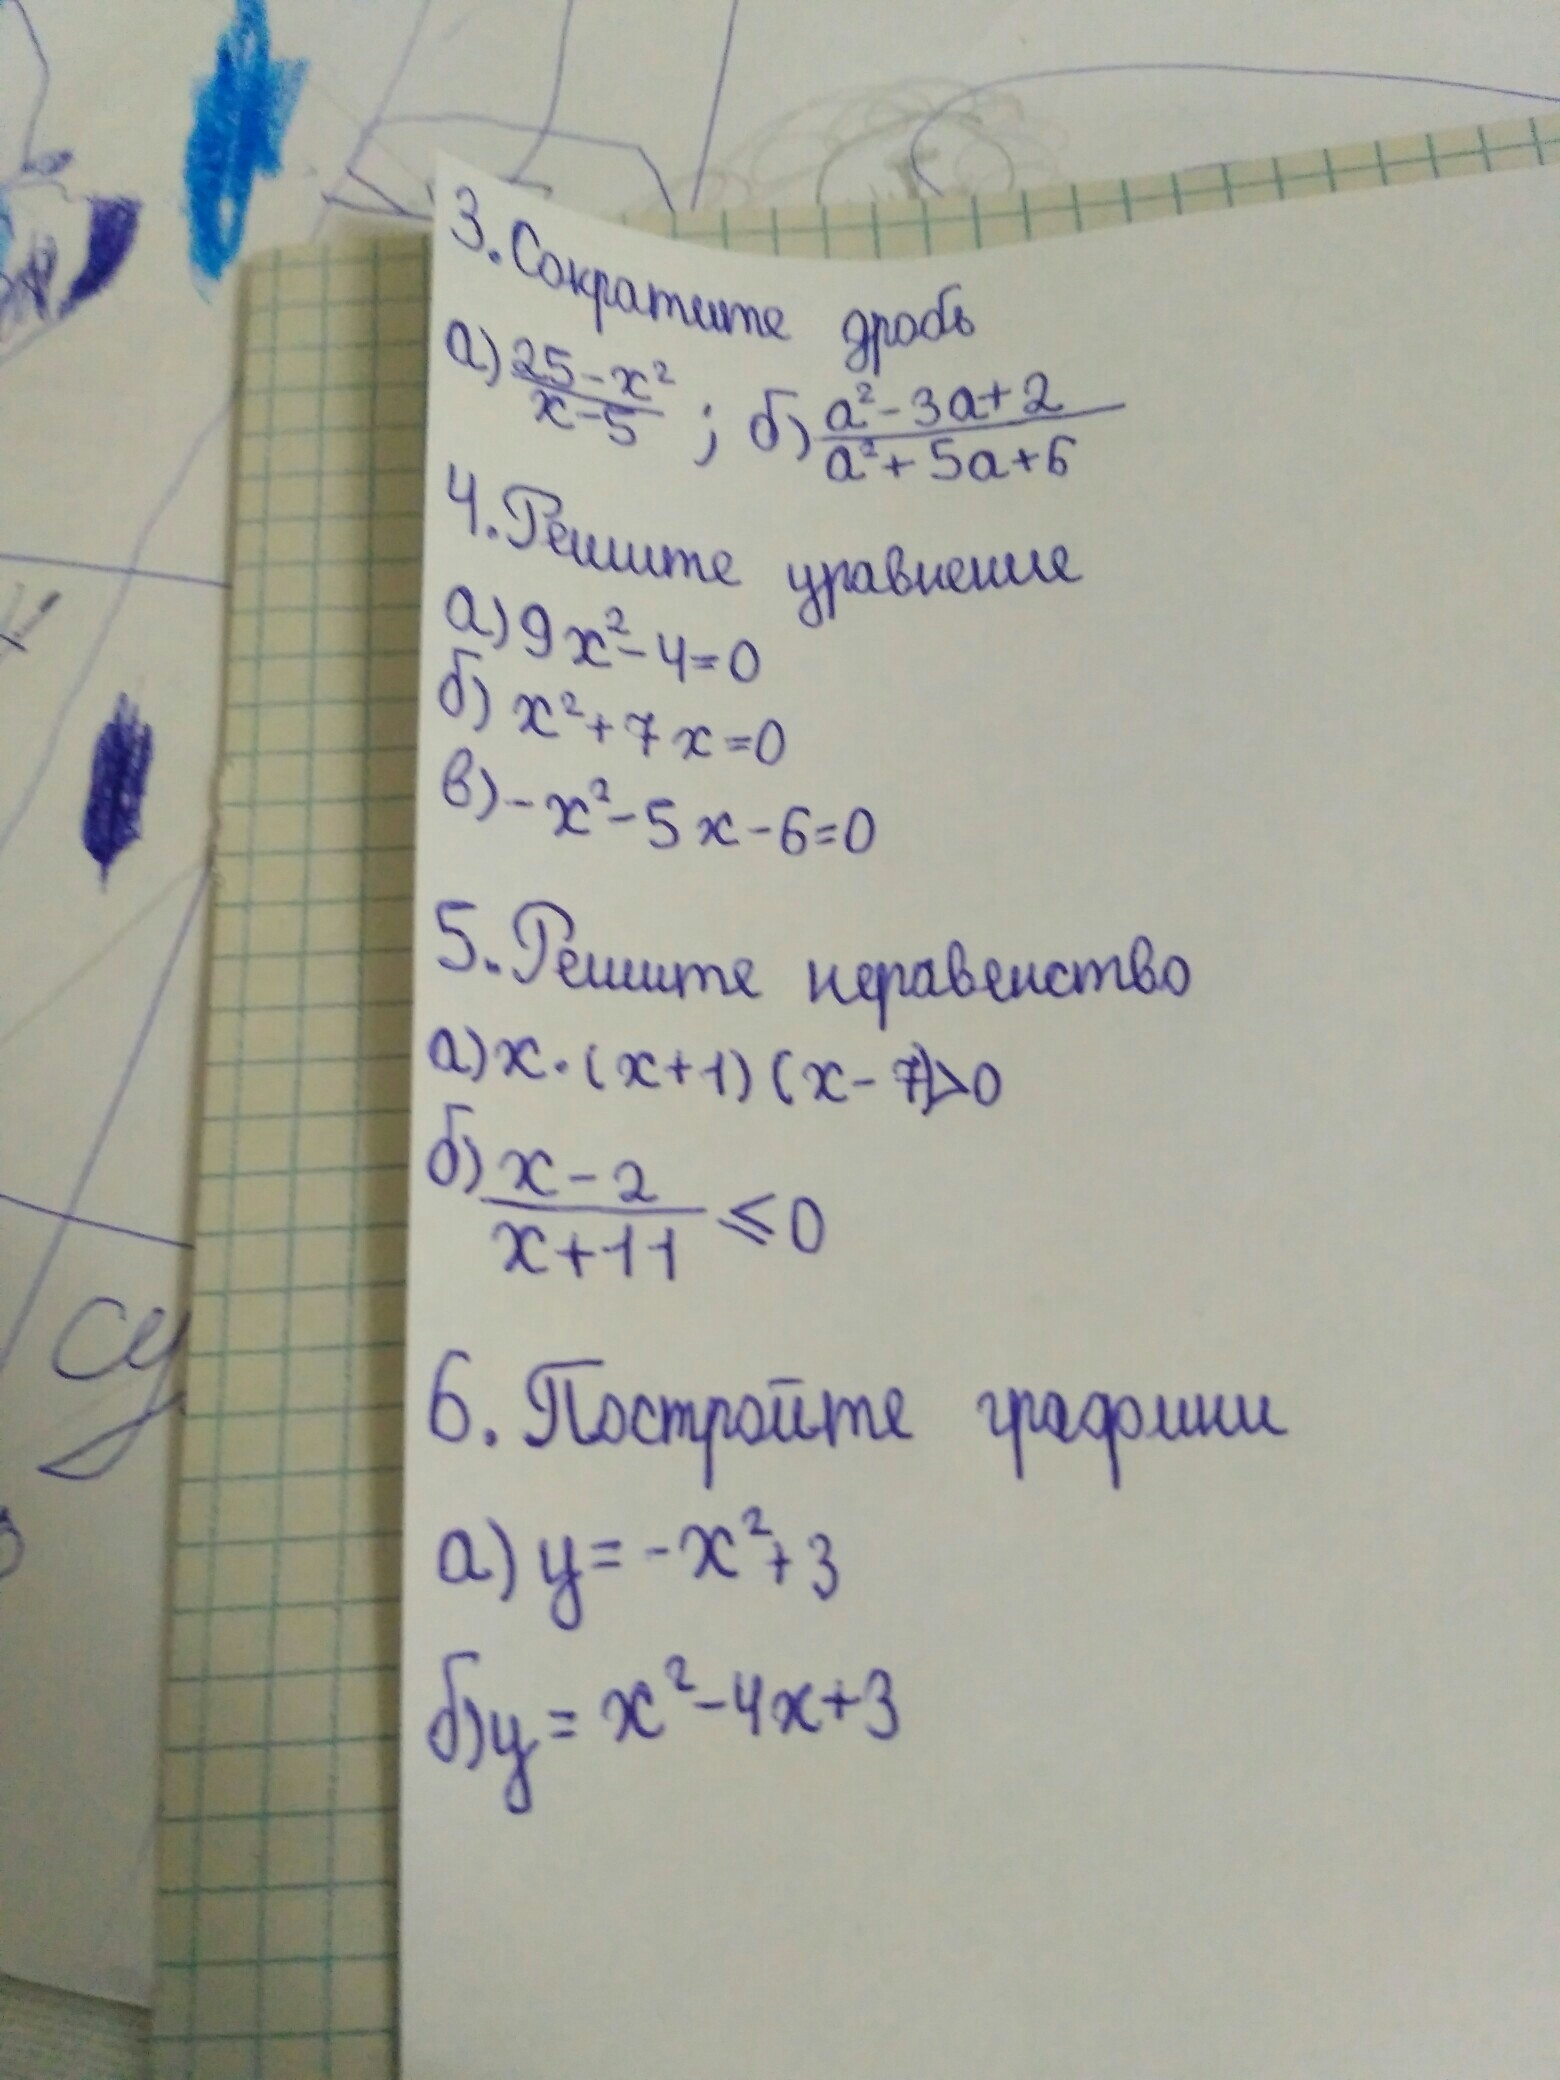 3. Сократите дробь
а) (25-x²)/(x-5) ; б) (a²-3a+2)/(a²+5a+6)
4. Решите уравнение
а) 9x²-4=0
б) x²+7x=0
в) -x²-5x-6=0
5. Решите неравенство
а) x·(x+1)(x-7)>0
б) (x-2)/(x+11) ≤0
6. Постройте графики
а) y=-x²+3
б) y=x²-4x+3